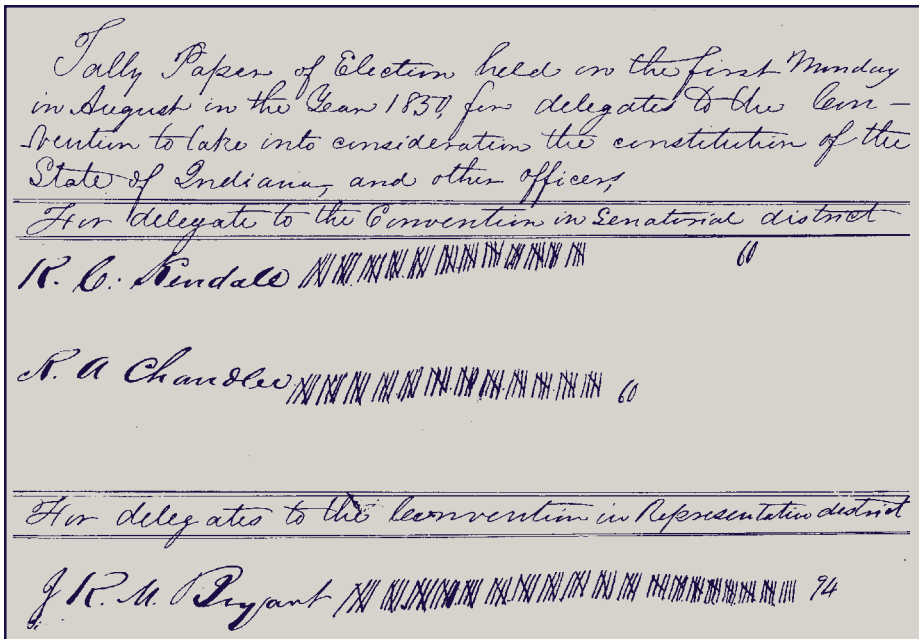 Tally Paper of Election held on the first Monday
in August in the Year 1850, for delegates to the Con-
vention to take into consideration the constitution of the
State of Indiana, and other officers,
For delegate to the Convention in Senatorial district
R. C. Kendall 60
R. A Chandler 60
For delegates to the Convention in Representative district
J R. M. Bryant 94